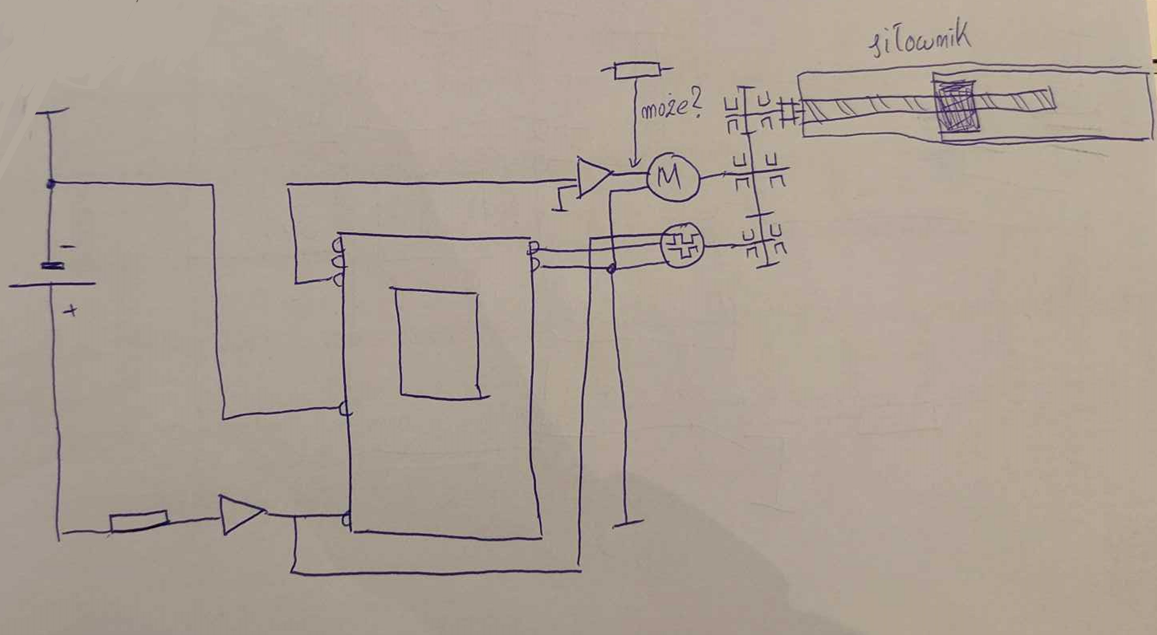 siłownik
może?
M
-
+